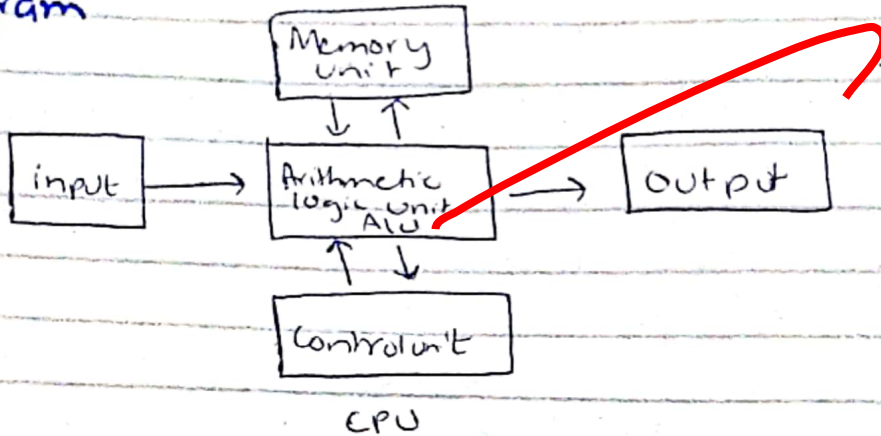 ram
Memory
unit
input
Arithmetic
logic unit
ALU
output
Controlunit
CPU